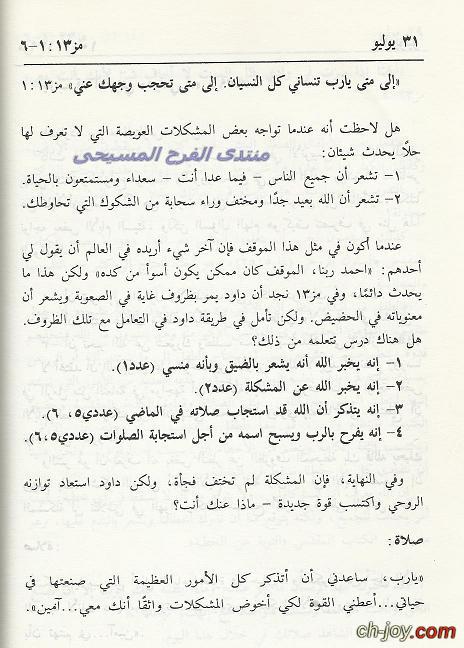 ٣١ يوليو
مز١٣:١-٦
«إلى متى يارب تنساني كل النسيان. إلى متى تحجب وجهك عني» مز١٣:١
هل لاحظت أنه عندما تواجه بعض المشكلات العويصة التي لا تعرف لها
حلًا يحدث شيئان:
منتدى الفرح المسيحى
١- تشعر أن جميع الناس – فيما عدا أنت – سعداء ومستمتعون بالحياة.
٢- تشعر أن الله بعيد جدًا ومختف وراء سحابة من الشكوك التي تحاوطك.
عندما أكون في مثل هذا الموقف فإن آخر شيء أريده في العالم أن يقول لي
أحدهم: «احمد ربنا، الموقف كان ممكن يكون أسوأ من كده» ولكن هذا ما
يحدث دائمًا، وفي مز١٣ نجد أن داود يمر بظروف غاية في الصعوبة ويشعر أن
معنوياته في الحضيض. ولكن تأمل في طريقة داود في التعامل مع تلك الظروف.
هل هناك درس تتعلمه من ذلك؟
١- إنه يخبر الله أنه يشعر بالضيق وبأنه منسي (عدد١).
٢- إنه يخبر الله عن المشكلة (عدد٢).
٣- إنه يتذكر أن الله قد استجاب صلاته في الماضي (عددي٥، ٦).
٤- إنه يفرح بالرب ويسبح اسمه من أجل استجابة الصلوات (عددي٥،٦).
وفي النهاية، فإن المشكلة لم تختف فجأة، ولكن داود استعاد توازنه
الروحي واكتسب قوة جديدة – ماذا عنك أنت؟
صلاة:
«يارب، ساعدني أن أتذكر كل الأمور العظيمة التي صنعتها في
حياتي...أعطني القوة لكي أخوض المشكلات واثقًا أنك معي...آمين».
ch-joy.com